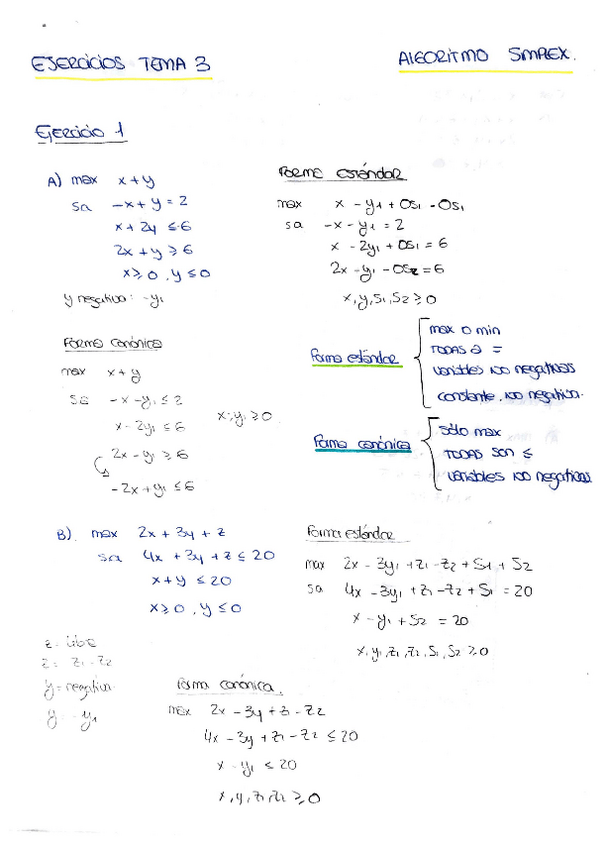 EJERCICIOS TEMA 3
ALGORITMO SIMPLEX.
Ejercicio 1
A) max x + y
sa -x + y = 2
x + 2y ≤ 6
2x + y ≥ 6
x ≥ 0, y ≤ 0
y negativa: -y₁
Forma estándar
max x - y₁ + 0s₁ - 0s₁
sa -x - y₁ = 2
x - 2y₁ + 0s₁ = 6
2x - y₁ - 0s₂ = 6
x, y, s₁, s₂ ≥ 0
Forma canónica
max x + y
sa -x - y₁ ≤ 2
x - 2y₁ ≤ 6
x, y₁ ≥ 0
2x - y₁ ≥ 6
-2x + y₁ ≤ 6
Forma estándar
max o min
TODAS a =
variables no negativas
constante no negativa.
Forma canónica
sólo max
TODAS son ≤
variables no negativas
B). max 2x + 3y + z
sa 4x + 3y + z ≤ 20
x + y ≤ 20
x ≥ 0, y ≤ 0
z = libre
z = z₁ - z₂
y = negativa
y - y₁
Forma estándar
max 2x - 3y₁ + z₁ - z₂ + s₁ + s₂
sa 4x - 3y₁ + z₁ - z₂ + s₁ = 20
x - y₁ + s₂ = 20
x, y₁, z₁, z₂, s₁, s₂ ≥ 0
Forma canónica.
max 2x - 3y + z₁ - z₂
4x - 3y + z₁ - z₂ ≤ 20
x - y₁ ≤ 20
x, y, z₁, z₂ ≥ 0